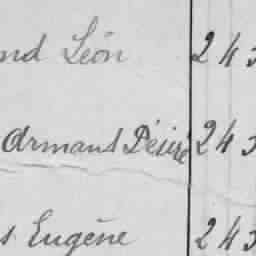 nd Léon 243
Armand Désiré 243
s Eugène 243